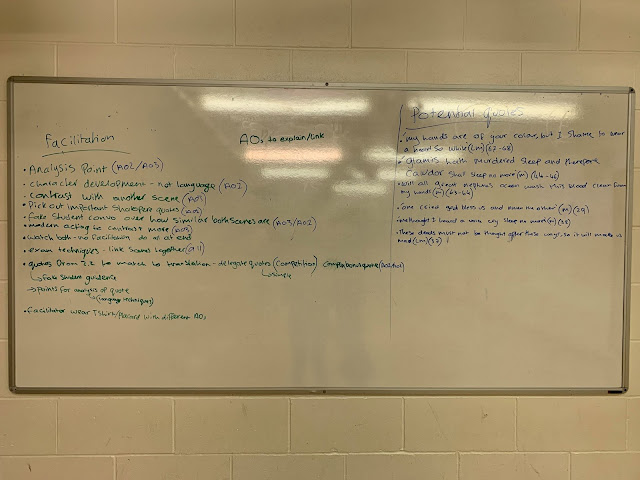 Facilitation
AOs to explain/link
• Analysis Point (AO2/AO3)
• character development - not language (AO2)
• contrast with another scene (AO3)
• Pick out important Shakespeare quotes (AO2)
• fake student convo over how similar both scenes are (AO3/AO2)
• modern acting to contrast more (AO3)
• watch both - no facilitation do at end
• exam techniques - link scenes together (all)
• quotes from 2.2 to match to translation - delegate quotes (competition)
→ fake student guidance
→ Points for analysis of quote
↳ (language techniques)
• facilitator wear Tshirt/placard with different AOs
Potential quotes
• 'my hands are of your colour, but I shame to wear
a heart so white (LM) (67-68)
• Glamis hath murdered sleep and therefore
Cawdor shall sleep no more (M)
• Will all great Neptunes ocean wash this blood clean from
my hands (M) (63-64)
• 'one cried god bless us and amen the other' (M) (29)
• Methought I heard a voice cry sleep no more (M) (38)
• These deeds must not be thought after these ways, so it will make us
mad (LM) (37)